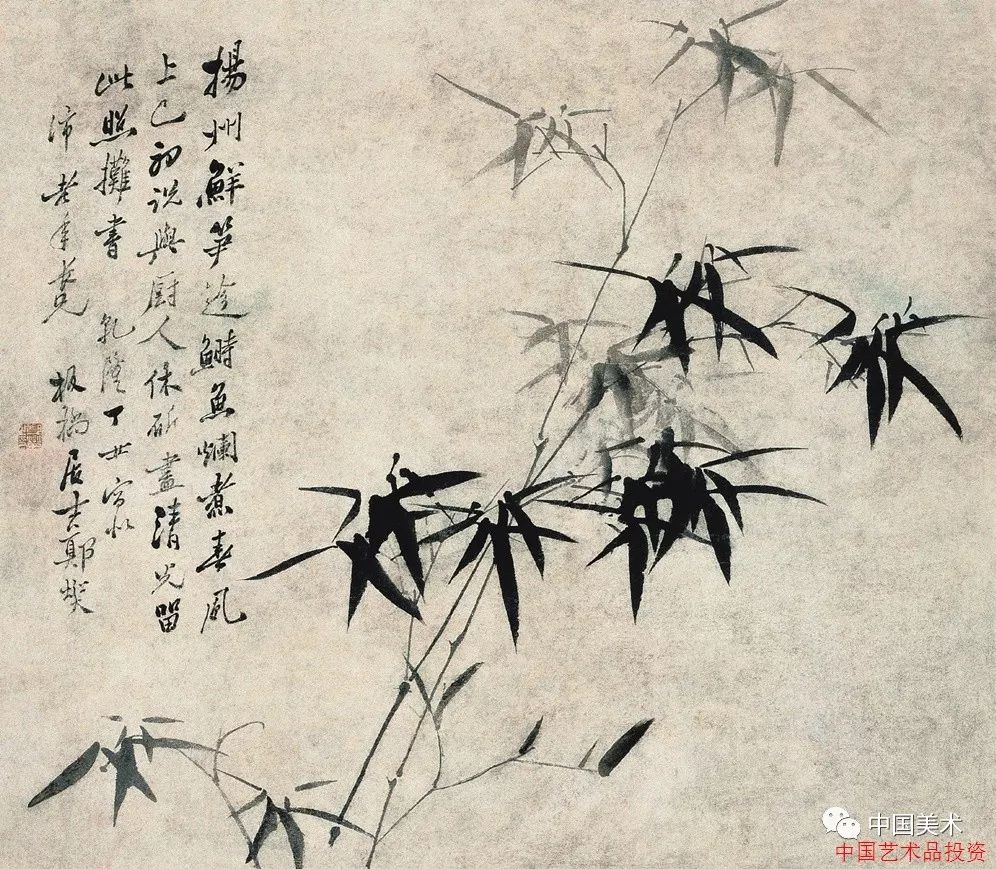 揚州鮮笋趂鰣魚爛煮春風
上巳初說與厨人休斫盡清光留
此照攤書 乾隆丁丑寫似
沛老年老兄 板橋居士鄭燮
中国美术
中国艺术品投资